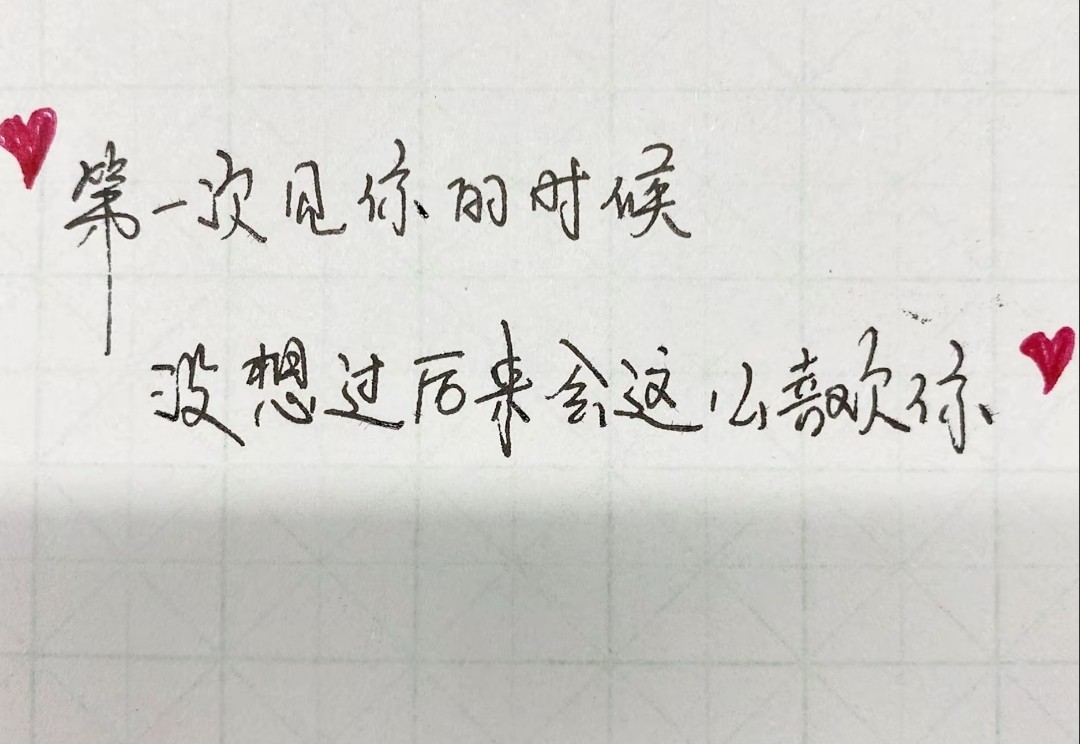 第一次见你的时候
没想过后来会这么喜欢你